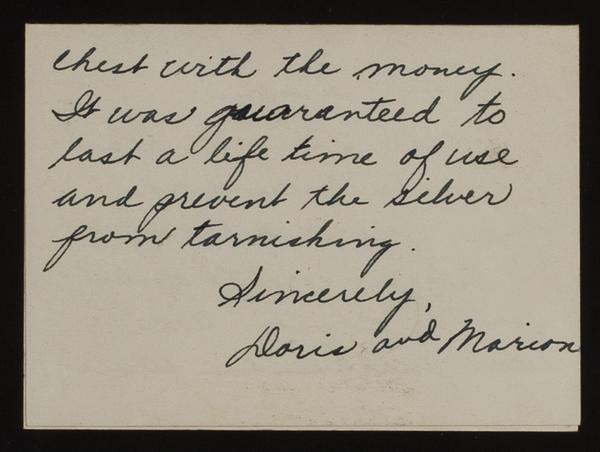 chest with the money.
It was guaranteed to
last a life time of use
and prevent the silver
from tarnishing.
Sincerely,
Doris and Marion